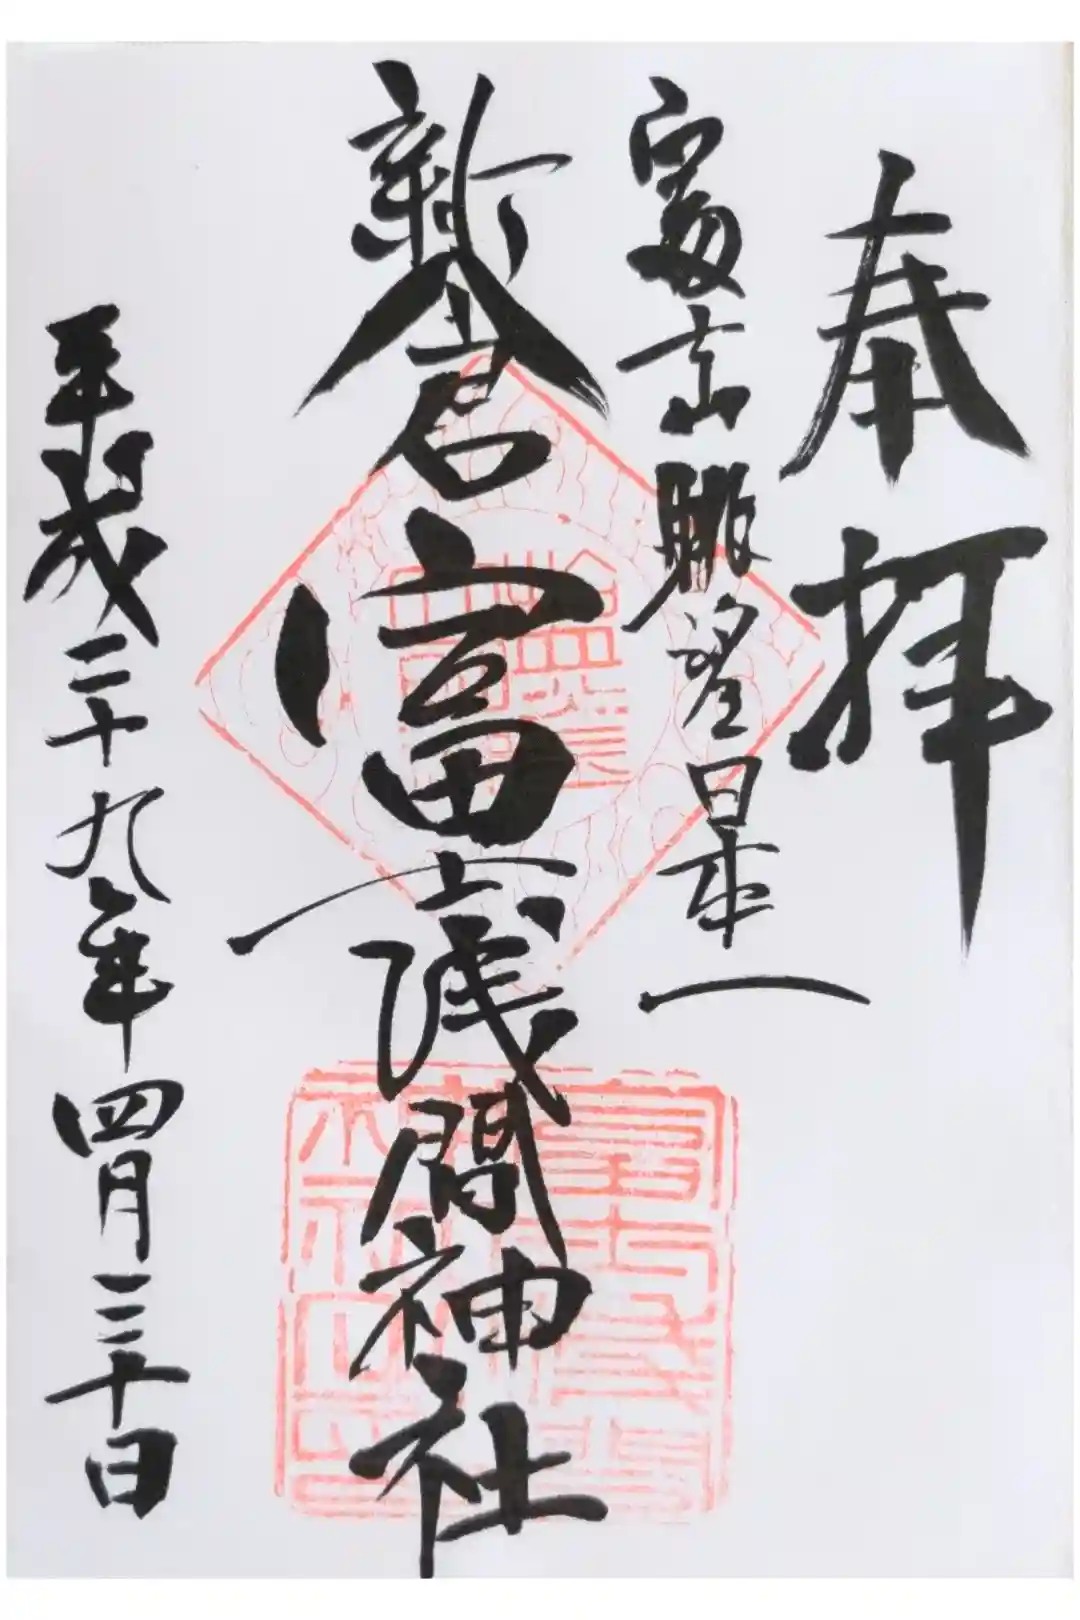 奉拝
富士山眺望日本一
新倉富士浅間神社
平成二十九年四月三十日